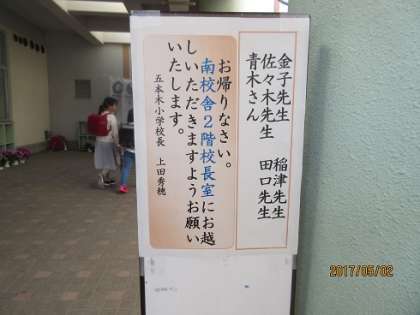 金子先生　稲津先生
佐々木先生　田口先生
青木さん
お帰りなさい。
南校舎２階校長室にお越
しいただきますようお願い
いたします。
五本木小学校長　上田秀穂
2017/05/02